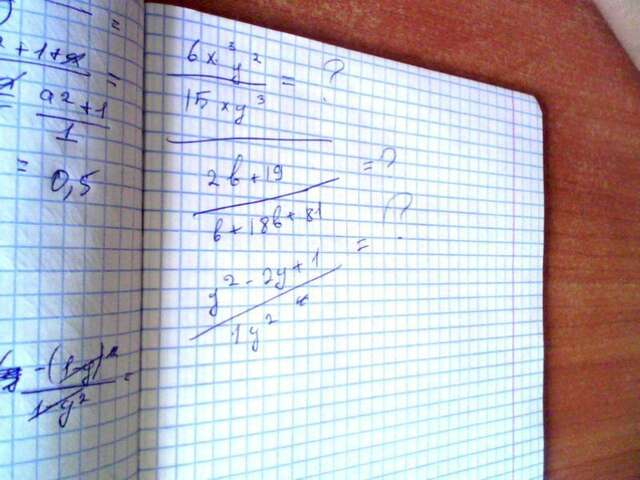 =
+1+
=
a² + 1
1
= 0,5
-(1-y)
1-y²
=
6x³y²
15xy³
= ?
2b+19
b+18b+81
= ?
y² - 2y + 1
1y²
= ?